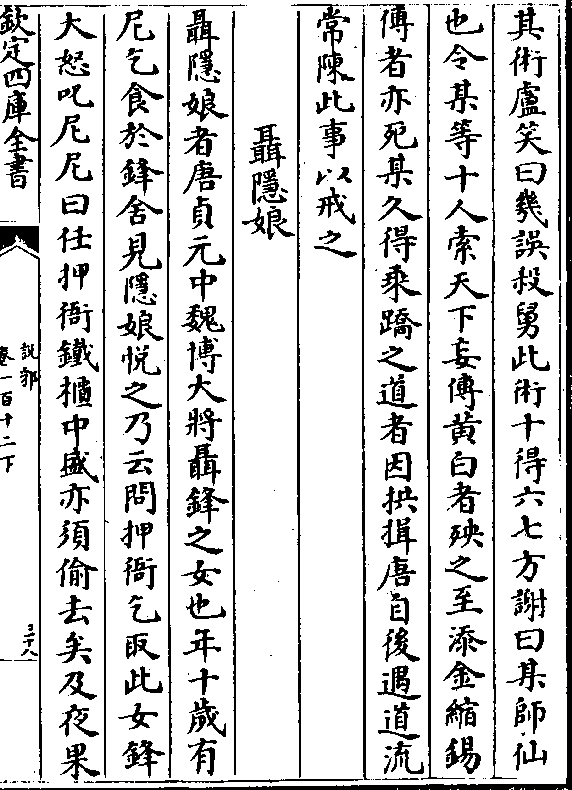 其術盧笑曰幾誤殺舅此術十得六七方謝曰某師仙
也令某等十人索天下妄傳黃白者殃之至添金縮錫
傳者亦死某久得乘蹻之道者因拱揖唐自後遇道流
常陳此事以戒之
聶隱娘
聶隱娘者唐貞元中魏博大將聶鋒之女也年十歲有
尼乞食於鋒舍見隱娘悅之乃云問押衙乞取此女鋒
大怒叱尼尼曰任押衙鐵櫃中盛亦須偷去矣及夜果
欽定四庫全書
說郛
卷一百十二下